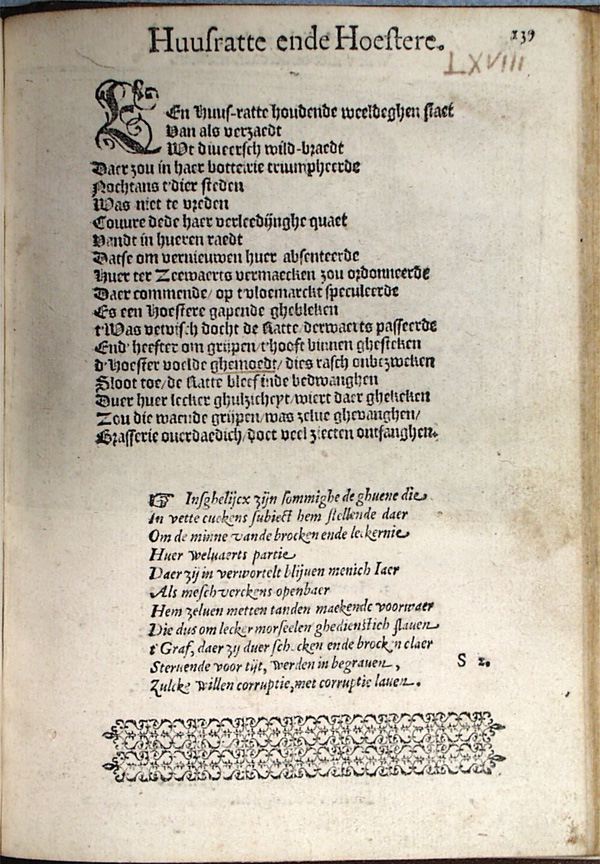 Huusratte ende Hoestere.
139
LXVIII
EEn Huus-ratte houdende weeldeghen staet
Van als verzaedt
Wt diueersch wild-braedt
Daer zou in haer botterie triumpheerde
Nochtans t'dier steden
Was niet te vreden
Couure dede haer verleedijnghe quaet
Vandt in hueren raedt
Datse om vernieuwen huer absenteerde
Huer ter Zeewaerts vermaecken zou ordonneerde
Daer commende/ op t'vloemarckt speculeerde
Es een Hoestere gapende ghebleken
t'Was vetvisch docht de Ratte/ derwaerts passeerde
End' heefter om grijpen/ t'hooft binnen ghesteken
d'Hoester voelde ghemoedt/ dies rasch onbezweken
Sloot toe/ de Ratte bleef inde bedwanghen
Duer huer lecker ghulzicheyt/ wiert daer ghekeken
Zou die waende grijpen/ was zelue ghevanghen/
Brasserie ouerdaedich/ doet veel ziecten ontfanghen.
☞ Insghelijcx zijn sommighe de ghuene die
In vette cuekens subiect hem stellende daer
Om de minne vande brocken ende leckernie
Huer welvaerts partie
Daer zij in verwortelt blijuen menich Iaer
Als mesch verckens openbaer
Hem zeluen metten tanden maekende voorwaer
Die dus om lecker morseelen ghedienstich slauen
t'Graf, daer zy duer schocken ende brocken claer
Steruende voor tijt, werden in begrauen,
Zulcke willen corruptie, met corruptie lauen.
S 2.